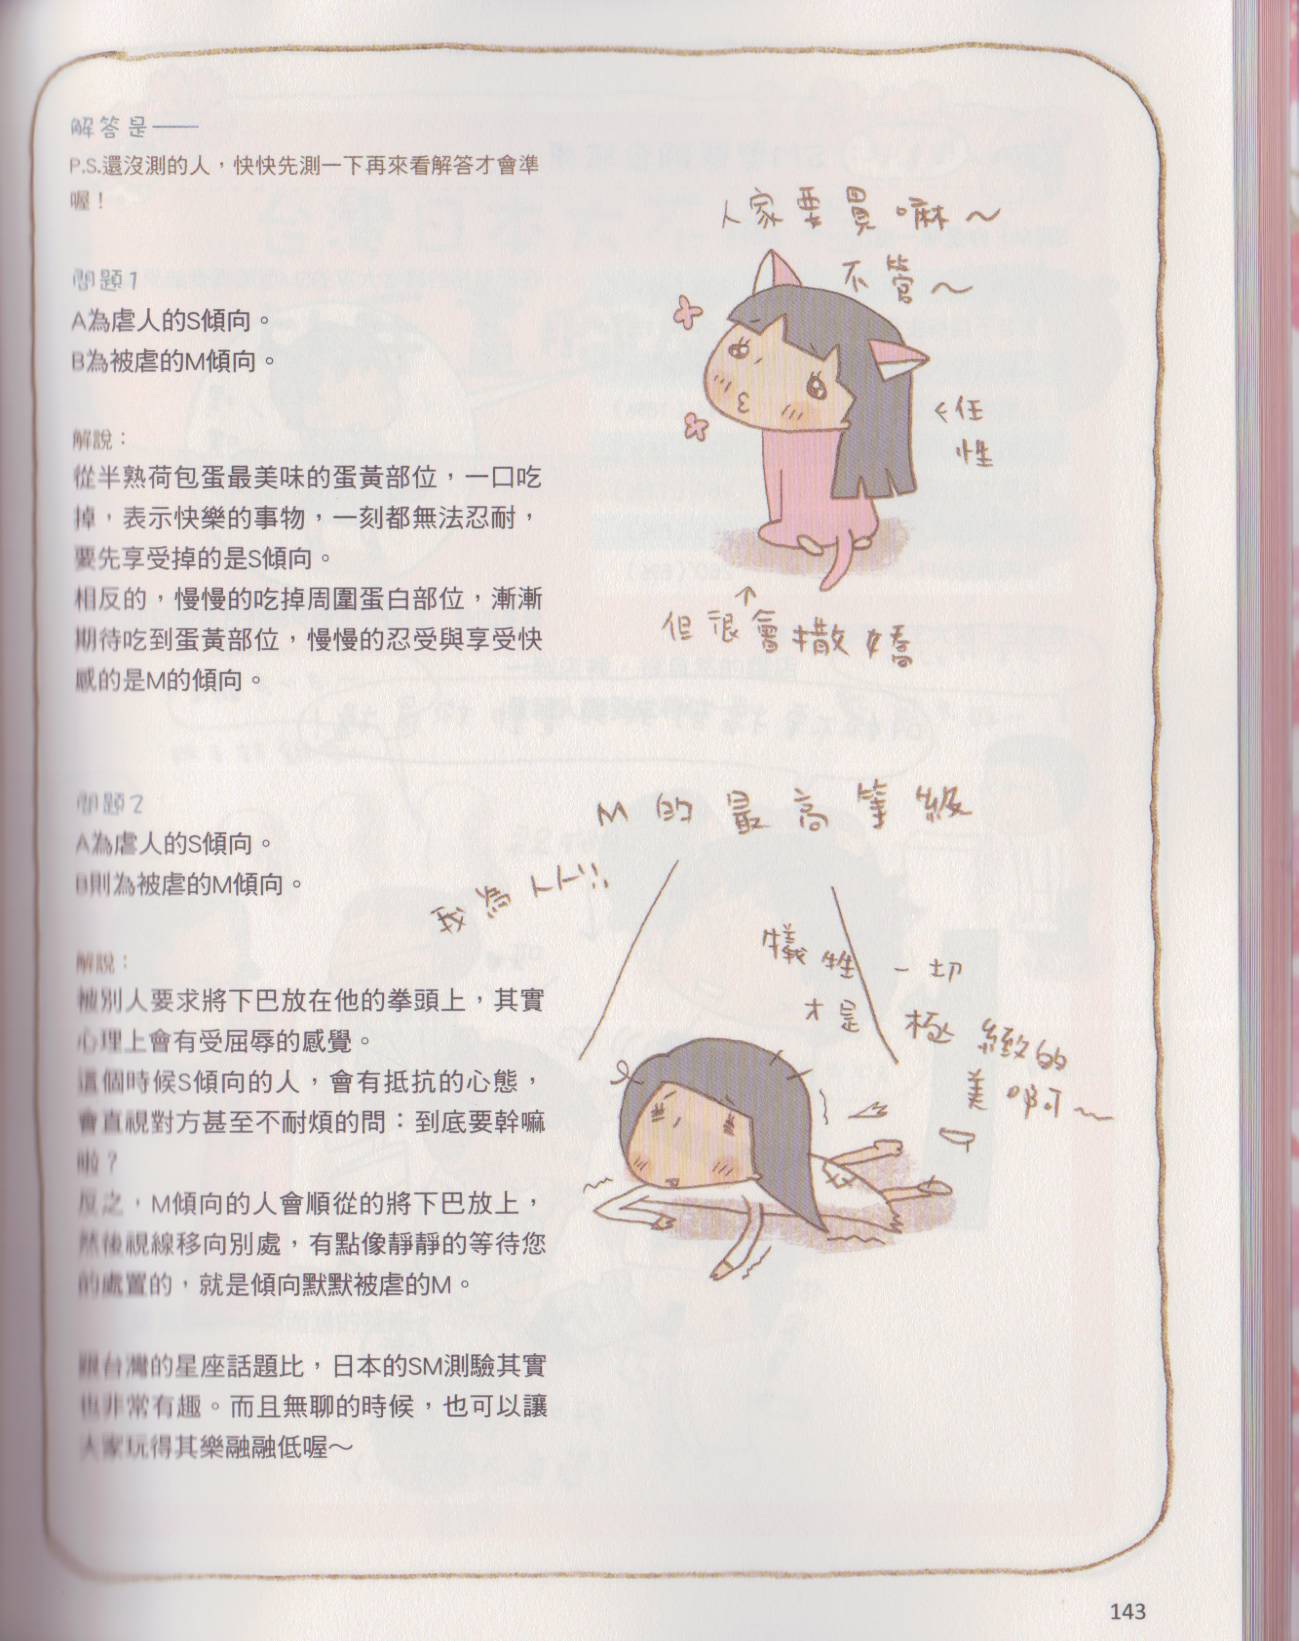 解答是──
P.S.還沒測的人，快快先測一下再來看解答才會準
喔！
問題1
A為虐人的S傾向。
B為被虐的M傾向。
解說：
從半熟荷包蛋最美味的蛋黃部位，一口吃
掉，表示快樂的事物，一刻都無法忍耐，
要先享受掉的是S傾向。
相反的，慢慢的吃掉周圍蛋白部位，漸漸
期待吃到蛋黃部位，慢慢的忍受與享受快
感的是M的傾向。
問題2
A為虐人的S傾向。
B則為被虐的M傾向。
解說：
被別人要求將下巴放在他的拳頭上，其實
心理上會有受屈辱的感覺。
這個時候S傾向的人，會有抵抗的心態，
會直視對方甚至不耐煩的問：到底要幹嘛
啦？
反之，M傾向的人會順從的將下巴放上，
然後視線移向別處，有點像靜靜的等待您
的處置的，就是傾向默默被虐的M。
跟台灣的星座話題比，日本的SM測驗其實
也非常有趣。而且無聊的時候，也可以讓
大家玩得其樂融融低喔～
人家要買嘛～
不管～
←任
性
↑
但很會撒嬌
M的最高等級
我為人人!!
犧牲一切
才是極緻的
美啊～
143